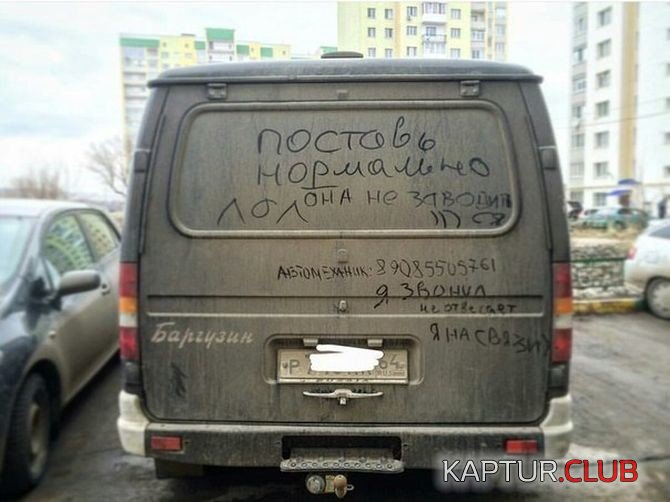 ПОСТАВЬ
НОРМАЛЬНО
ЛОЛ ОНА НЕ ЗАВОДИТ
)))) СЯ
АВТОМЕХАНИК: 89085505761
Я ЗВОНИЛ
НЕ ОТВЕЧАЕТ
Я НА СВЯЗИ)
Баргузин
Р 64
RUS
KAPTUR.CLUB